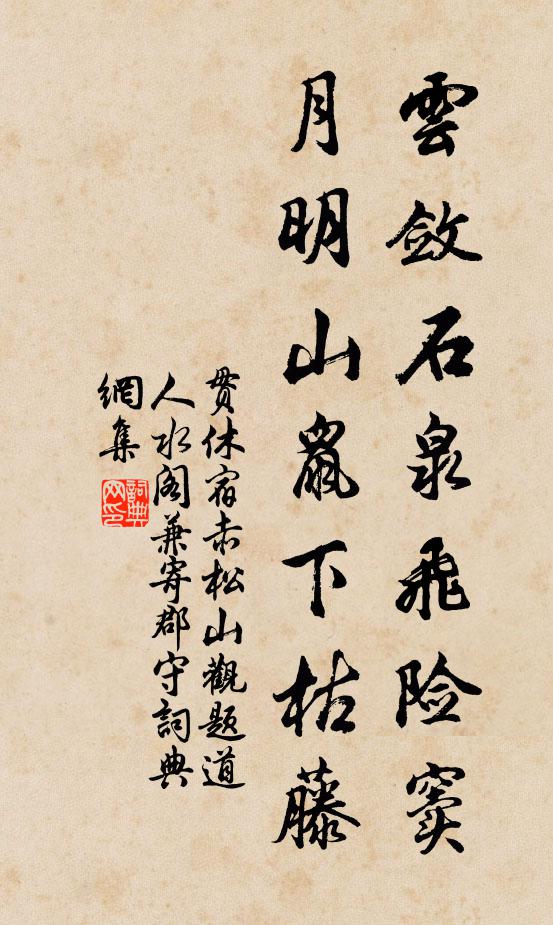 雲斂石泉飛险窦
月明山鼠下枯藤
貫休宿赤松山觀题道
人水阁兼寄郡守詞典
網集
詞典
网印